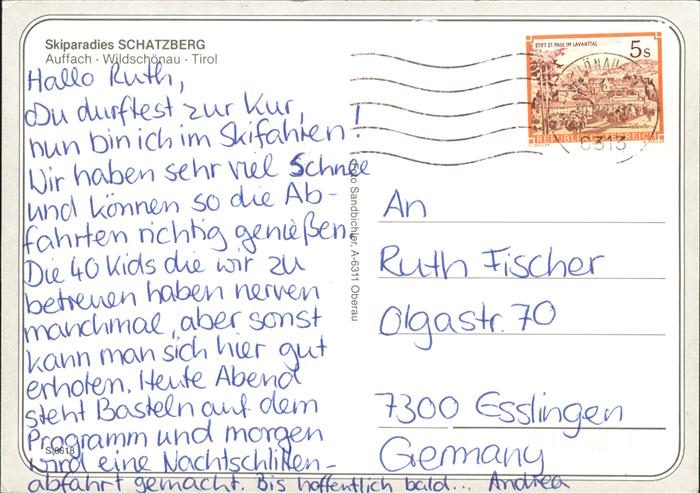 Skiparadies SCHATZBERG
Auffach - Wildschönau - Tirol
Hallo Ruth,
Du durftest zur Kur,
nun bin ich im Skifahren!
Wir haben sehr viel Schnee
und können so die Ab-
fahrten richtig genießen.
Die 40 Kids die wir zu
betreuen haben nerven
manchmal, aber sonst
kann man sich hier gut
erholen. Heute Abend
steht Basteln auf dem
Programm und morgen
wird eine Nachtschlitten-
abfahrt gemacht. Bis hoffentlich bald... Andrea
S 6618
Foto Sandbichler, A-6311 Oberau
STIFT ST. PAUL IM LAVANTTAL
5s
REPUBLIK ÖSTERREICH
6313
An
Ruth Fischer
Olgastr. 70
7300 Esslingen
Germany